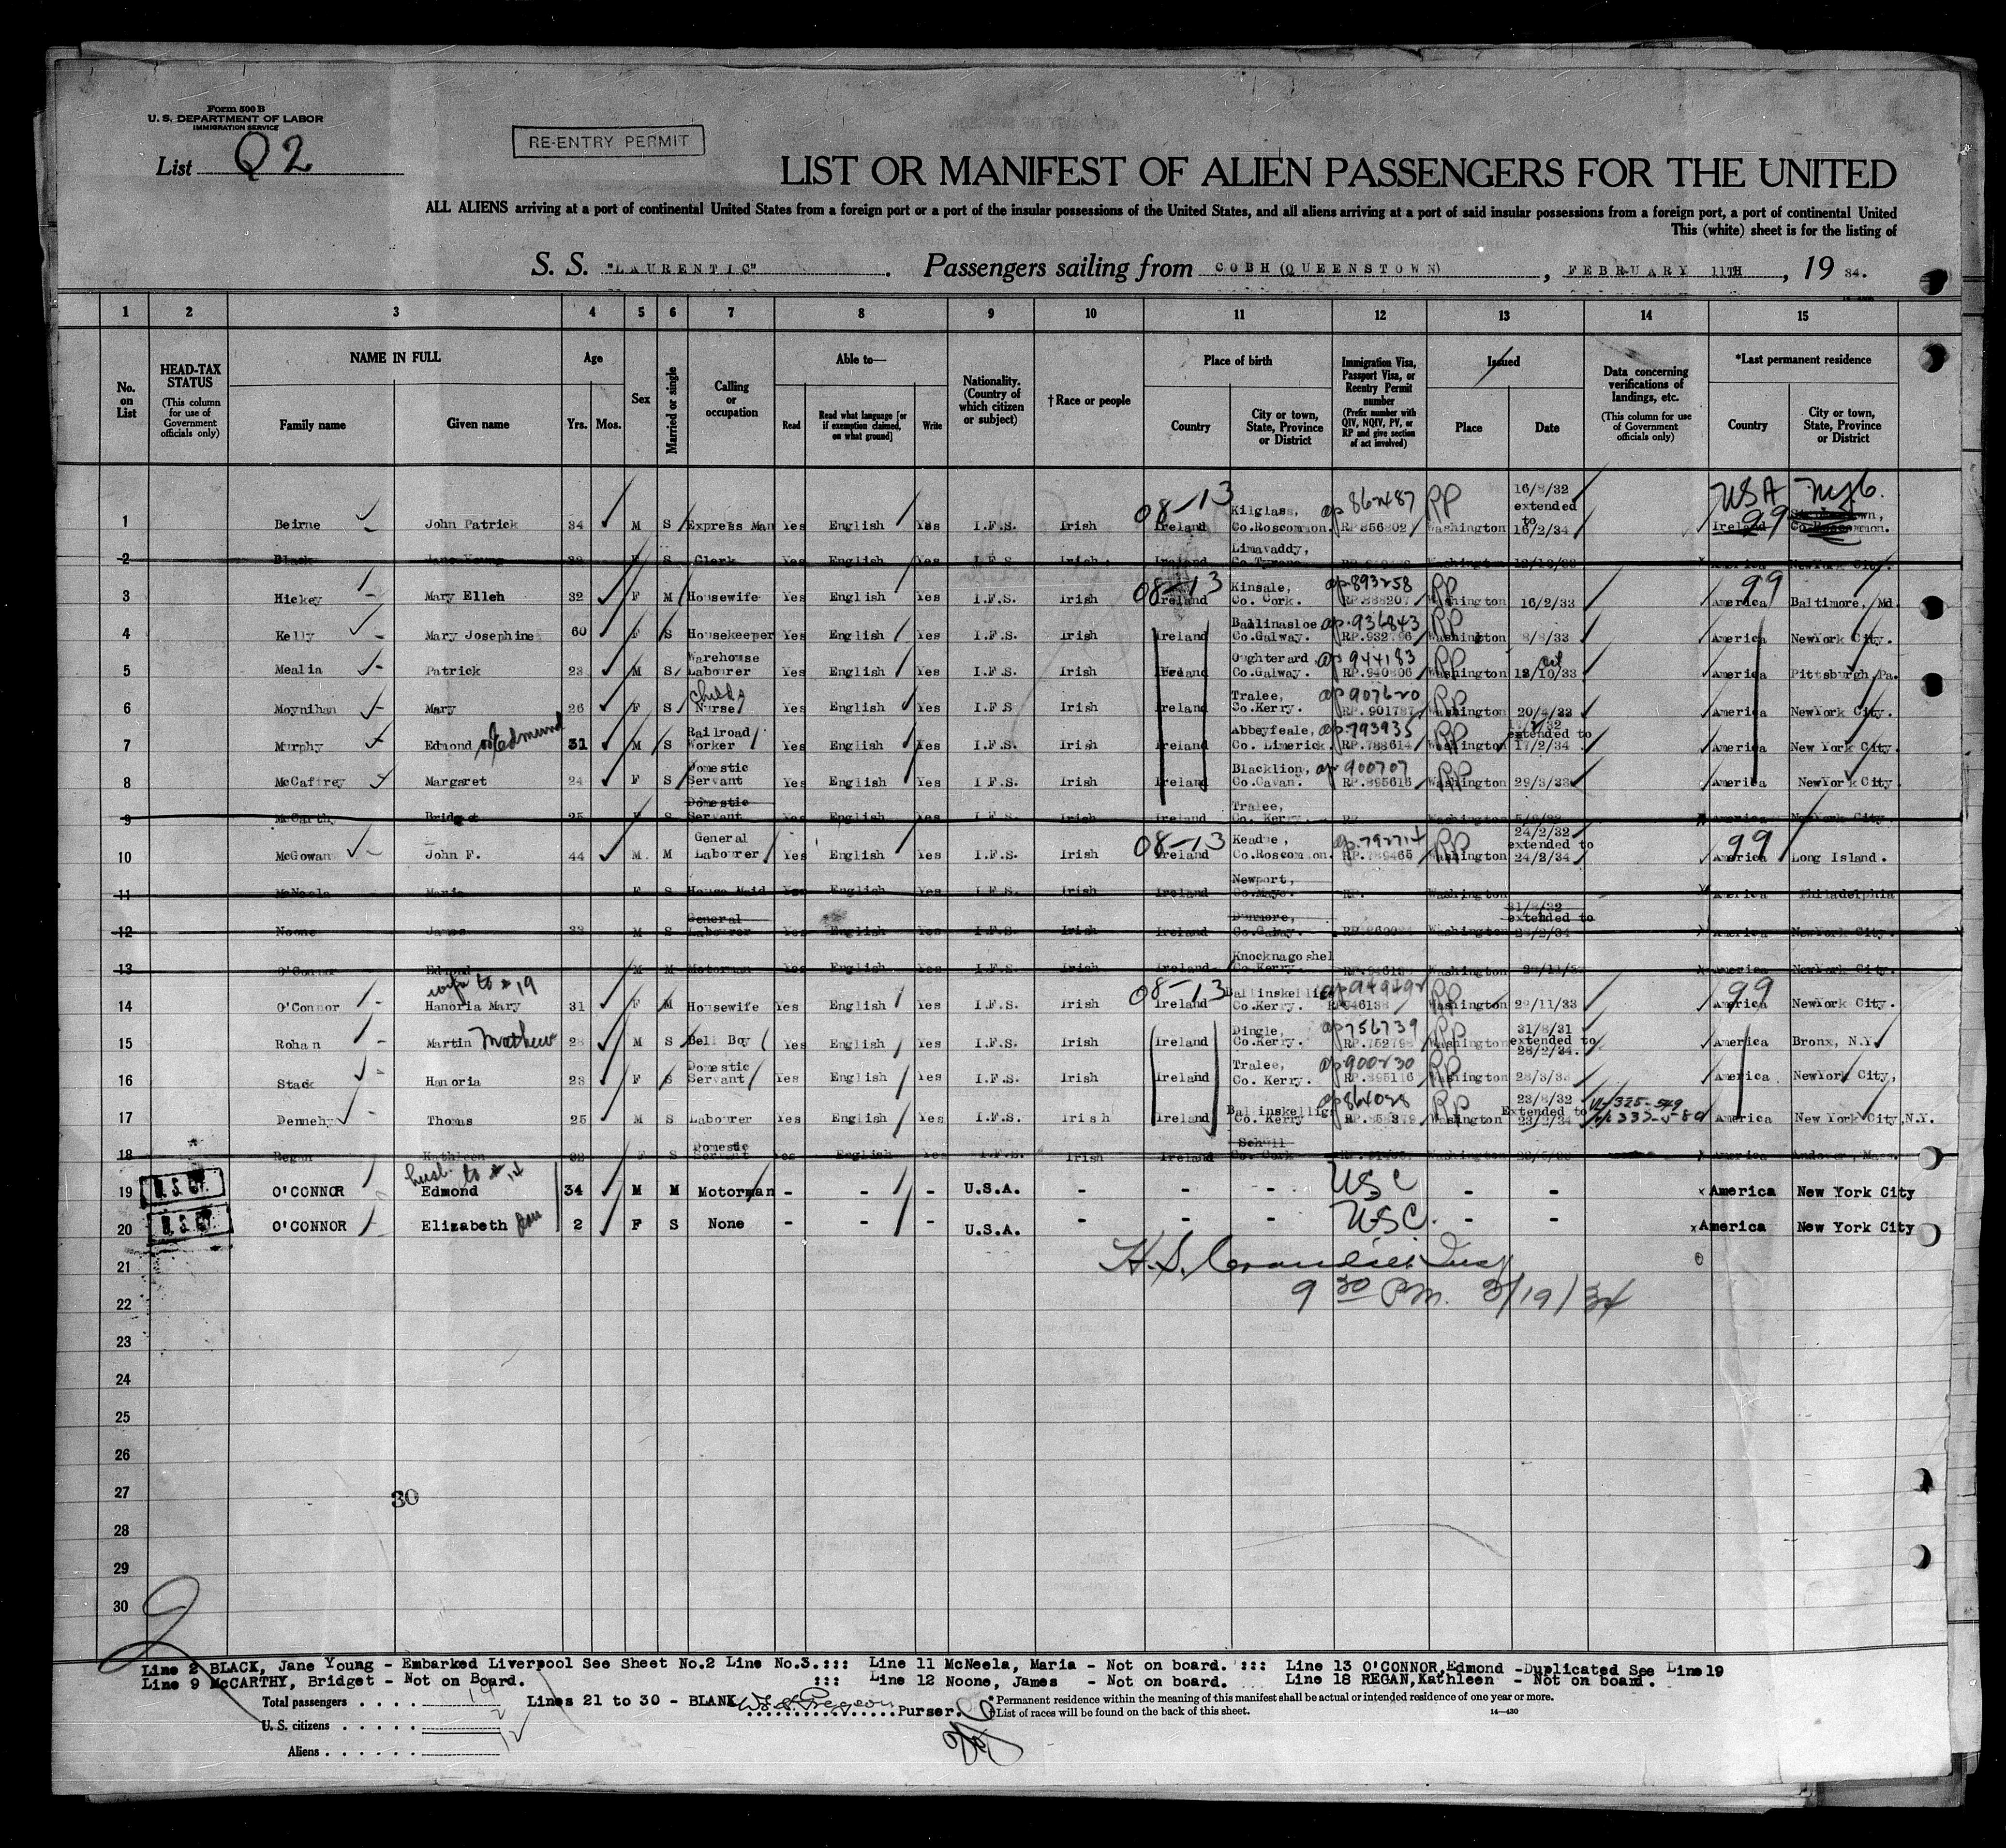 Form 500 B
U. S. DEPARTMENT OF LABOR
IMMIGRATION SERVICE
List Q2
RE-ENTRY PERMIT
LIST OR MANIFEST OF ALIEN PASSENGERS FOR THE UNITED
ALL ALIENS arriving at a port of continental United States from a foreign port or a port of the insular possessions of the United States, and all aliens arriving at a port of said insular possessions from a foreign port, a port of continental United
This (white) sheet is for the listing of
S. S. "LAURENTIC". Passengers sailing from COBH (QUEENSTOWN), FEBRUARY 11TH, 19 34.
1 2 3 4 5 6 7 8 9 10 11 12 13 14 15
No. on List
HEAD-TAX STATUS (This column for use of Government officials only)
NAME IN FULL Family name Given name
Age Yrs. Mos.
Sex
Married or single
Calling or occupation
Able to— Read Read what language [or if exemption claimed, on what ground] Write
Nationality. (Country of which citizen or subject)
†Race or people
Place of birth Country City or town, State, Province or District
Immigration Visa, Passport Visa, or Reentry Permit number (Prefix number with QIV, NQIV, PV, or RP and give section of act involved)
Issued Place Date
Data concerning verifications of landings, etc. (This column for use of Government officials only)
*Last permanent residence Country City or town, State, Province or District
1 Beirne John Patrick 34 M S Express Man Yes English Yes I.F.S. Irish 08-13 Ireland Kilglass, Co.Roscommon. 862487 RP.856802 RP Washington 16/8/32 extended to 16/2/34 USA Ireland 99 NYC.
2 Black Jane Young F S Clerk Yes English Yes I.F.S. Irish. Ireland Limavaddy, Co.Tyrone Washington America NewYork City.
3 Hickey Mary Ellen 32 F M Housewife Yes English Yes I.F.S. Irish 08-13 Ireland Kinsale, Co. Cork. 893258 RP.888207 RP Washington 16/2/33 99 America Baltimore, Md.
4 Kelly Mary Josephine 60 F S Housekeeper Yes English Yes I.F.S. Irish Ireland Ballinasloe Co.Galway. 936843 RP.932796 RP Washington 8/8/33 America NewYork City.
5 Mealia Patrick 23 M S Warehouse Labourer Yes English Yes I.F.S. Irish Ireland Oughterard, Co.Galway. 944183 RP.940806 RP Washington 18/10/33 America Pittsburgh, Pa.
6 Moynihan Mary 26 F S Childs Nurse Yes English Yes I.F.S Irish Ireland Tralee, Co.Kerry. 907620 RP.901787 RP Washington 20/4/33 America NewYork City.
7 Murphy Edmond or Edmund 31 M S Railroad Worker Yes English Yes I.F.S. Irish Ireland Abbeyfeale, Co. Limerick. 793935 RP.788614 RP Washington extended to 17/2/34 America New York City
8 McCaffrey Margaret 24 F S Domestic Servant Yes English Yes I.F.S. Irish Ireland Blacklion, Co.Cavan. 900707 RP.895616 RP Washington 29/3/33 America NewYork City
9 McCarthy Bridget 25 F S Domestic Servant Yes English Yes I.F.S. Irish Ireland Tralee, Co. Kerry. RP Washington America NewYork City
10 McGowan John F. 44 M. M General Labourer Yes English Yes I.F.S. Irish 08-13 Ireland Keadue, Co.Roscommon. 792714 RP.789465 RP Washington 24/2/32 extended to 24/2/34 99 America Long Island.
11 McNeela Maria F S House Maid Yes English Yes I.F.S. Irish Ireland Newport, Co.Mayo. RP. Washington America Philadelphia
12 Noone James M S General Labourer Yes English Yes I.F.S. Irish Ireland Dunmore, Co.Galway. Washington extended to America NewYork City.
13 O'Connor Edmond M M Motorman Yes English Yes I.F.S. Irish Ireland Knocknagoshel Co.Kerry. Washington America NewYork City.
14 O'Connor wife to # 19 Hanoria Mary 31 F M Housewife Yes English Yes I.F.S. Irish 08-13 Ireland Ballinskellig Co.Kerry. 949492 RP946138 RP Washington 29/11/33 99 America NewYork City.
15 Rohan Martin Mathew 28 M S Bell Boy Yes English Yes I.F.S. Irish Ireland Dingle, Co.Kerry. 756739 RP.752798 RP Washington 31/8/31 extended to 28/2/34. America Bronx, N.Y.
16 Stack Hanoria 23 F S Domestic Servant Yes English Yes I.F.S. Irish Ireland Tralee, Co. Kerry. 900230 RP.895116 RP Washington 28/3/33 America NewYork City,
17 Dennehy Thomas 25 M S Labourer Yes English Yes I.F.S. Irish Ireland Ballinskelligs Co. Kerry 864028 RP.858379 RP Washington 23/8/32 Extended to 23/2/34 America New York City, N.Y.
18 Regan Kathleen F S Domestic Servant Yes English Yes I.F.S. Irish Ireland Schull Co. Cork Washington America Andover, Mass.
19 O'CONNOR husb. to # 14 Edmond 34 M M Motorman - - - U.S.A. - - - USC - - x America New York City
20 O'CONNOR Elizabeth 2 F S None - - - U.S.A. - - - USC. - - x America New York City
21
9 30 P.M. 3/19/34
22
23
24
25
26
27 30
28
29
30
Line 2 BLACK, Jane Young - Embarked Liverpool See Sheet No.2 Line No.3.::: Line 11 McNeela, Maria - Not on board. ::: Line 13 O'CONNOR,Edmond -Duplicated See Line19
Line 9 McCARTHY, Bridget - Not on Board. ::: Line 12 Noone, James - Not on board. Line 18 REGAN,Kathleen - Not on board.
Total passengers
Lines 21 to 30 - BLANK Purser.
* Permanent residence within the meaning of this manifest shall be actual or intended residence of one year or more.
† List of races will be found on the back of this sheet.
14—430
U. S. citizens 2
Aliens 12